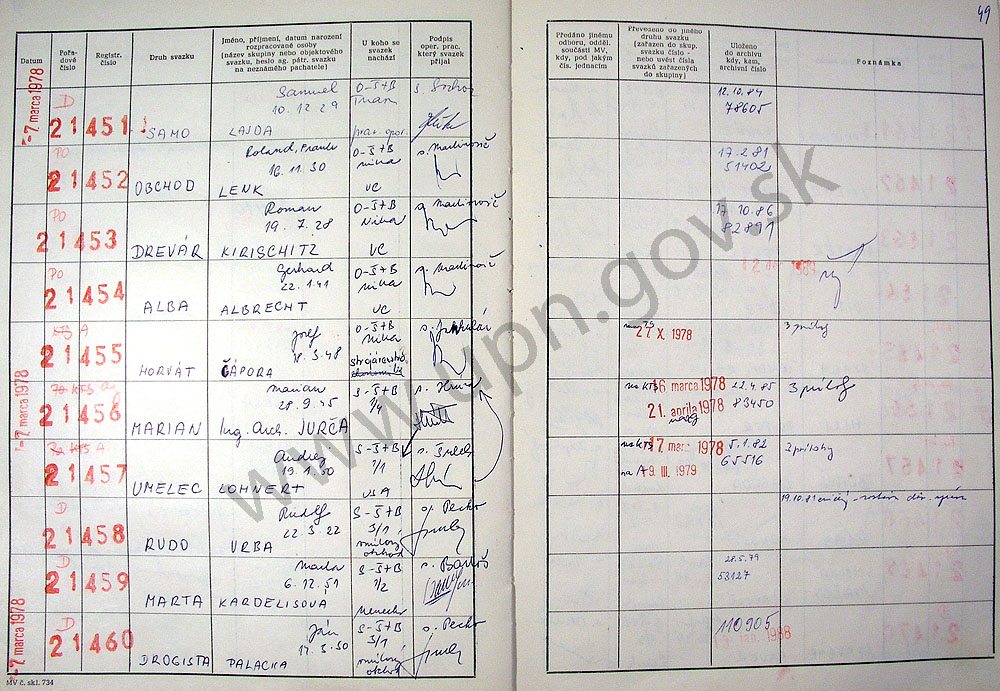 49
Datum
Pořadové číslo
Registr. číslo
Druh svazku
Jméno, příjmení, datum narození rozpracované osoby (název skupiny nebo objektového svazku, heslo ag. pátr. svazku na neznámého pachatele)
U koho se svazek nachází
Podpis oper. prac. který svazek přijal
Předáno jinému odboru, odděl. součásti MV, kdy, pod jakým čís. jednacím
Převedeno do jiného druhu svazku (zařazen do skup. svazku číslo - nebo uvést čísla svazků zařazených do skupiny)
Uloženo do archivu kdy, kam, archivní číslo
Poznámka
-7. marca 1978
D
21451
SAMO
Samuel
10.12.29
LAJDA
O-Š+B
12.10.84
78605
PO
21452
OBCHOD
16.11.30
LENK
O-Š+B
Nitra
VC
s. Martinovič
17.2.81
51402
PO
21453
DREVÁR
Roman
19.7.28
KIRISCHITZ
O-Š+B
Nitra
VC
s. Martinovič
17.10.86
82891
PO
21454
ALBA
Gerhard
22.1.41
ALBRECHT
O-Š+B
Nitra
VC
s. Martinovič
A
21455
HORVÁT
Jozef
18.3.48
ČÁPORA
O-Š+B
Nitra
strojárenstvo
27. X. 1978
3 prílohy
-7. marca 1978
KTS
21456
MARIAN
Marian
28.9.45
Ing. Arch. JURCA
S-Š+B
na KTS 16 marca 1978
21. apríla 1978
22.4.85
83450
3 príloh
KTS A
21457
UMELEC
Andrej
19.1.50
LOHNERT
S-Š+B
7/1
USA
na KTS 17. marc 1978
na A -9. III. 1979
5.1.82
65516
3 prílohy
D
21458
RUDO
Rudolf
22.3.22
VRBA
S-Š+B
3/1
vnútorný
obchod
s. Pecho
19.10.81
D
21459
MARTA
6.12.51
KARDELISOVÁ
S-Š+B
7/2
28.5.79
53127
-7. marca 1978
D
21460
DROGISTA
Ján
PALACKA
S-Š+B
3/1
vnútorný
obchod
s. Pecho
110905
MV č. skl. 734
www.upn.gov.sk